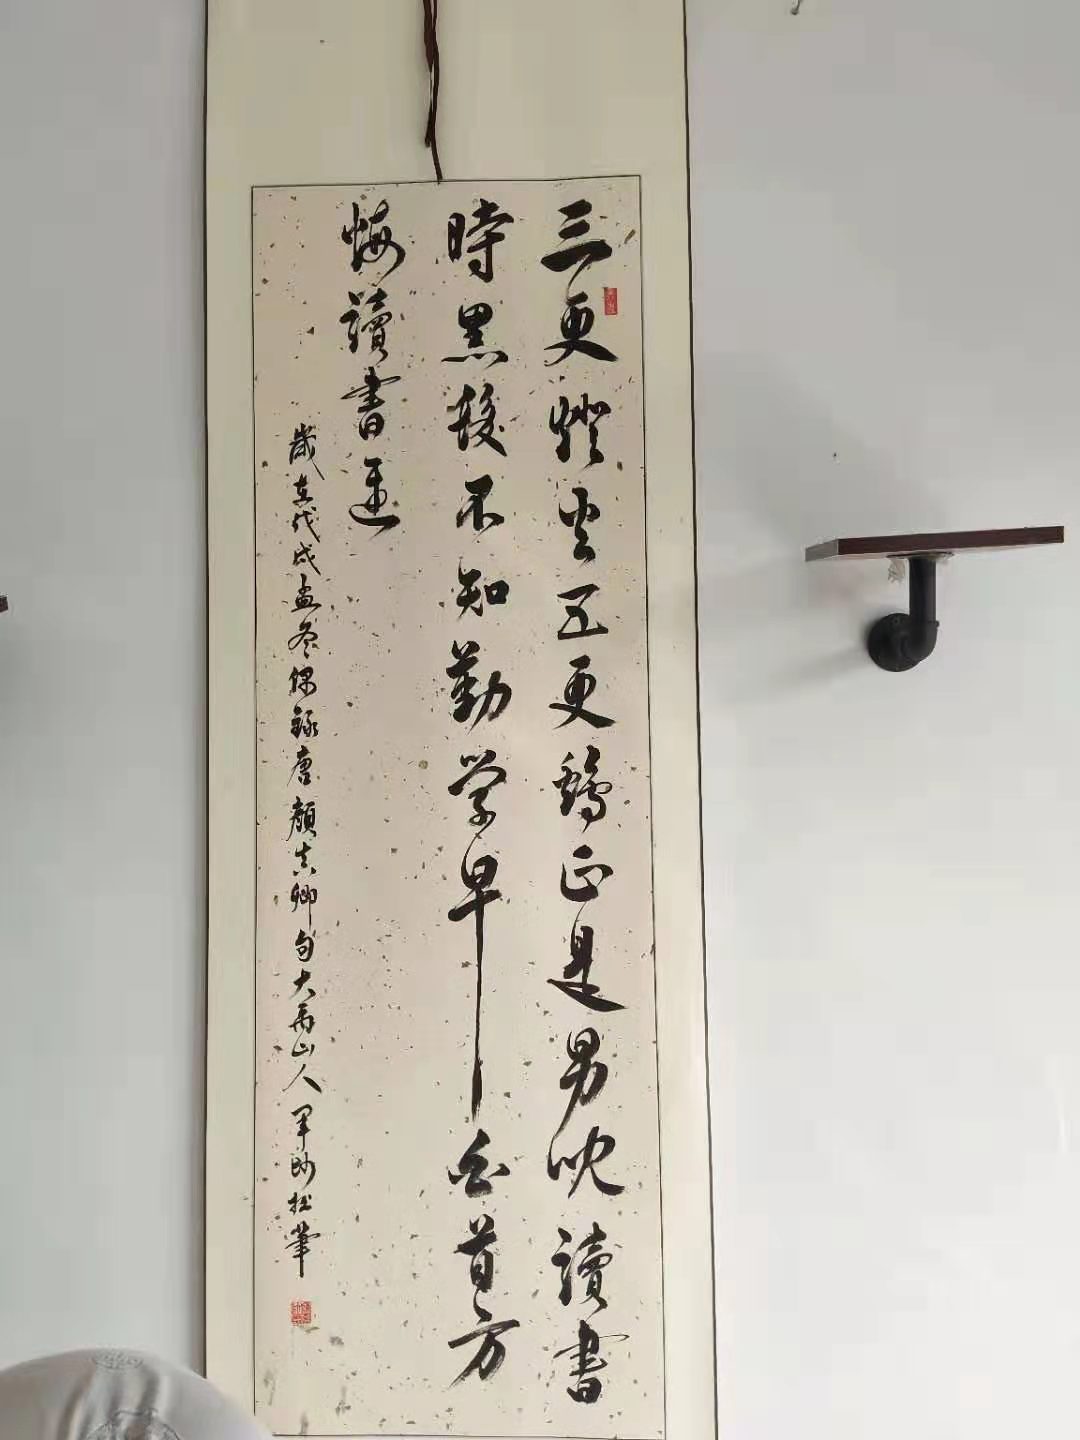 三更燈火五更鷄正是男兒讀書
時黑髮不知勤学早白首方
悔讀書遲
歲在戊戌孟冬偶録唐顏真卿句大禹山人軍